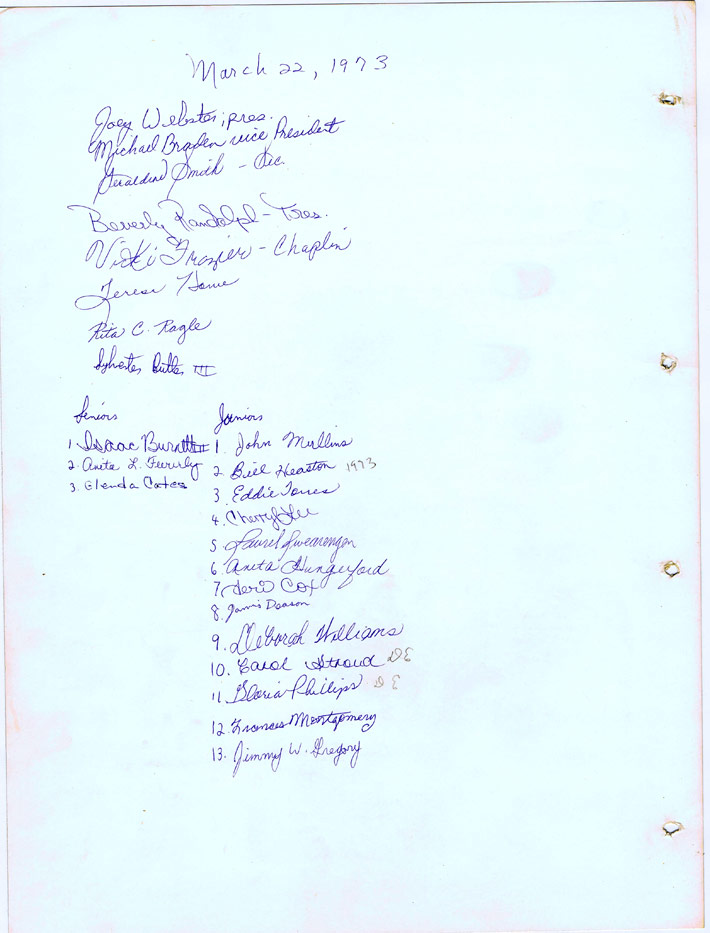 March 22, 1973
Joey Webster, pres.
Michael Braden vice President
Geraldine Smith - Sec.
Beverly Randolph - Tres.
Vicki Frazier - Chaplin
Teresa
Rita C. Ragle
Sylvester Butler III
Seniors
1 Isaac Burnett II
2. Anita L.
3. Glenda Cates
Juniors
1. John Mullins
2. Bill Heaston 1973
3. Eddie Torres
4. Cheryl Lee
5. Laurel Swearengen
6. Anita Hungerford
7. Teri Cox
8. Deason
9. Deborah Williams
10. Carol Stroud DE
11. Gloria Phillips DE
12. Frances Montgomery
13. Jimmy W. Gregory